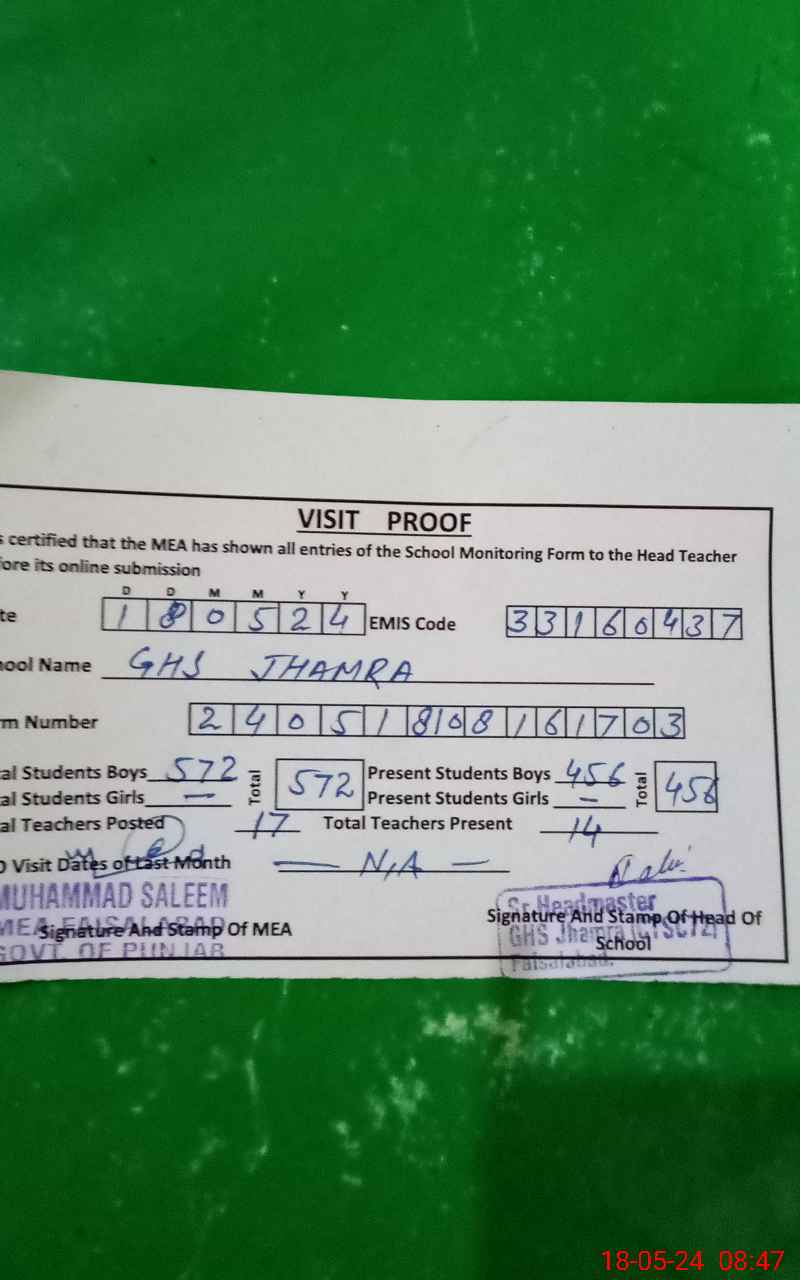 VISIT PROOF
s certified that the MEA has shown all entries of the School Monitoring Form to the Head Teacher
ore its online submission
D D M M Y Y
te 1 8 0 5 2 4 EMIS Code 3 3 1 6 0 4 3 7
ool Name GHS JHAMRA
m Number 2 4 0 5 1 8 0 8 1 6 1 7 0 3
al Students Boys 572 Total 572 Present Students Boys 456 Total 456
al Students Girls — Present Students Girls —
al Teachers Posted 17 Total Teachers Present 14
O Visit Dates of Last Month — N/A —
MUHAMMAD SALEEM
MEA FAISALABAD
GOVT. OF PUNJAB
Signature And Stamp Of MEA
Sr. Headmaster
GHS Jhamra
Faisalabad.
Signature And Stamp Of Head Of
School
18-05-24 08:47